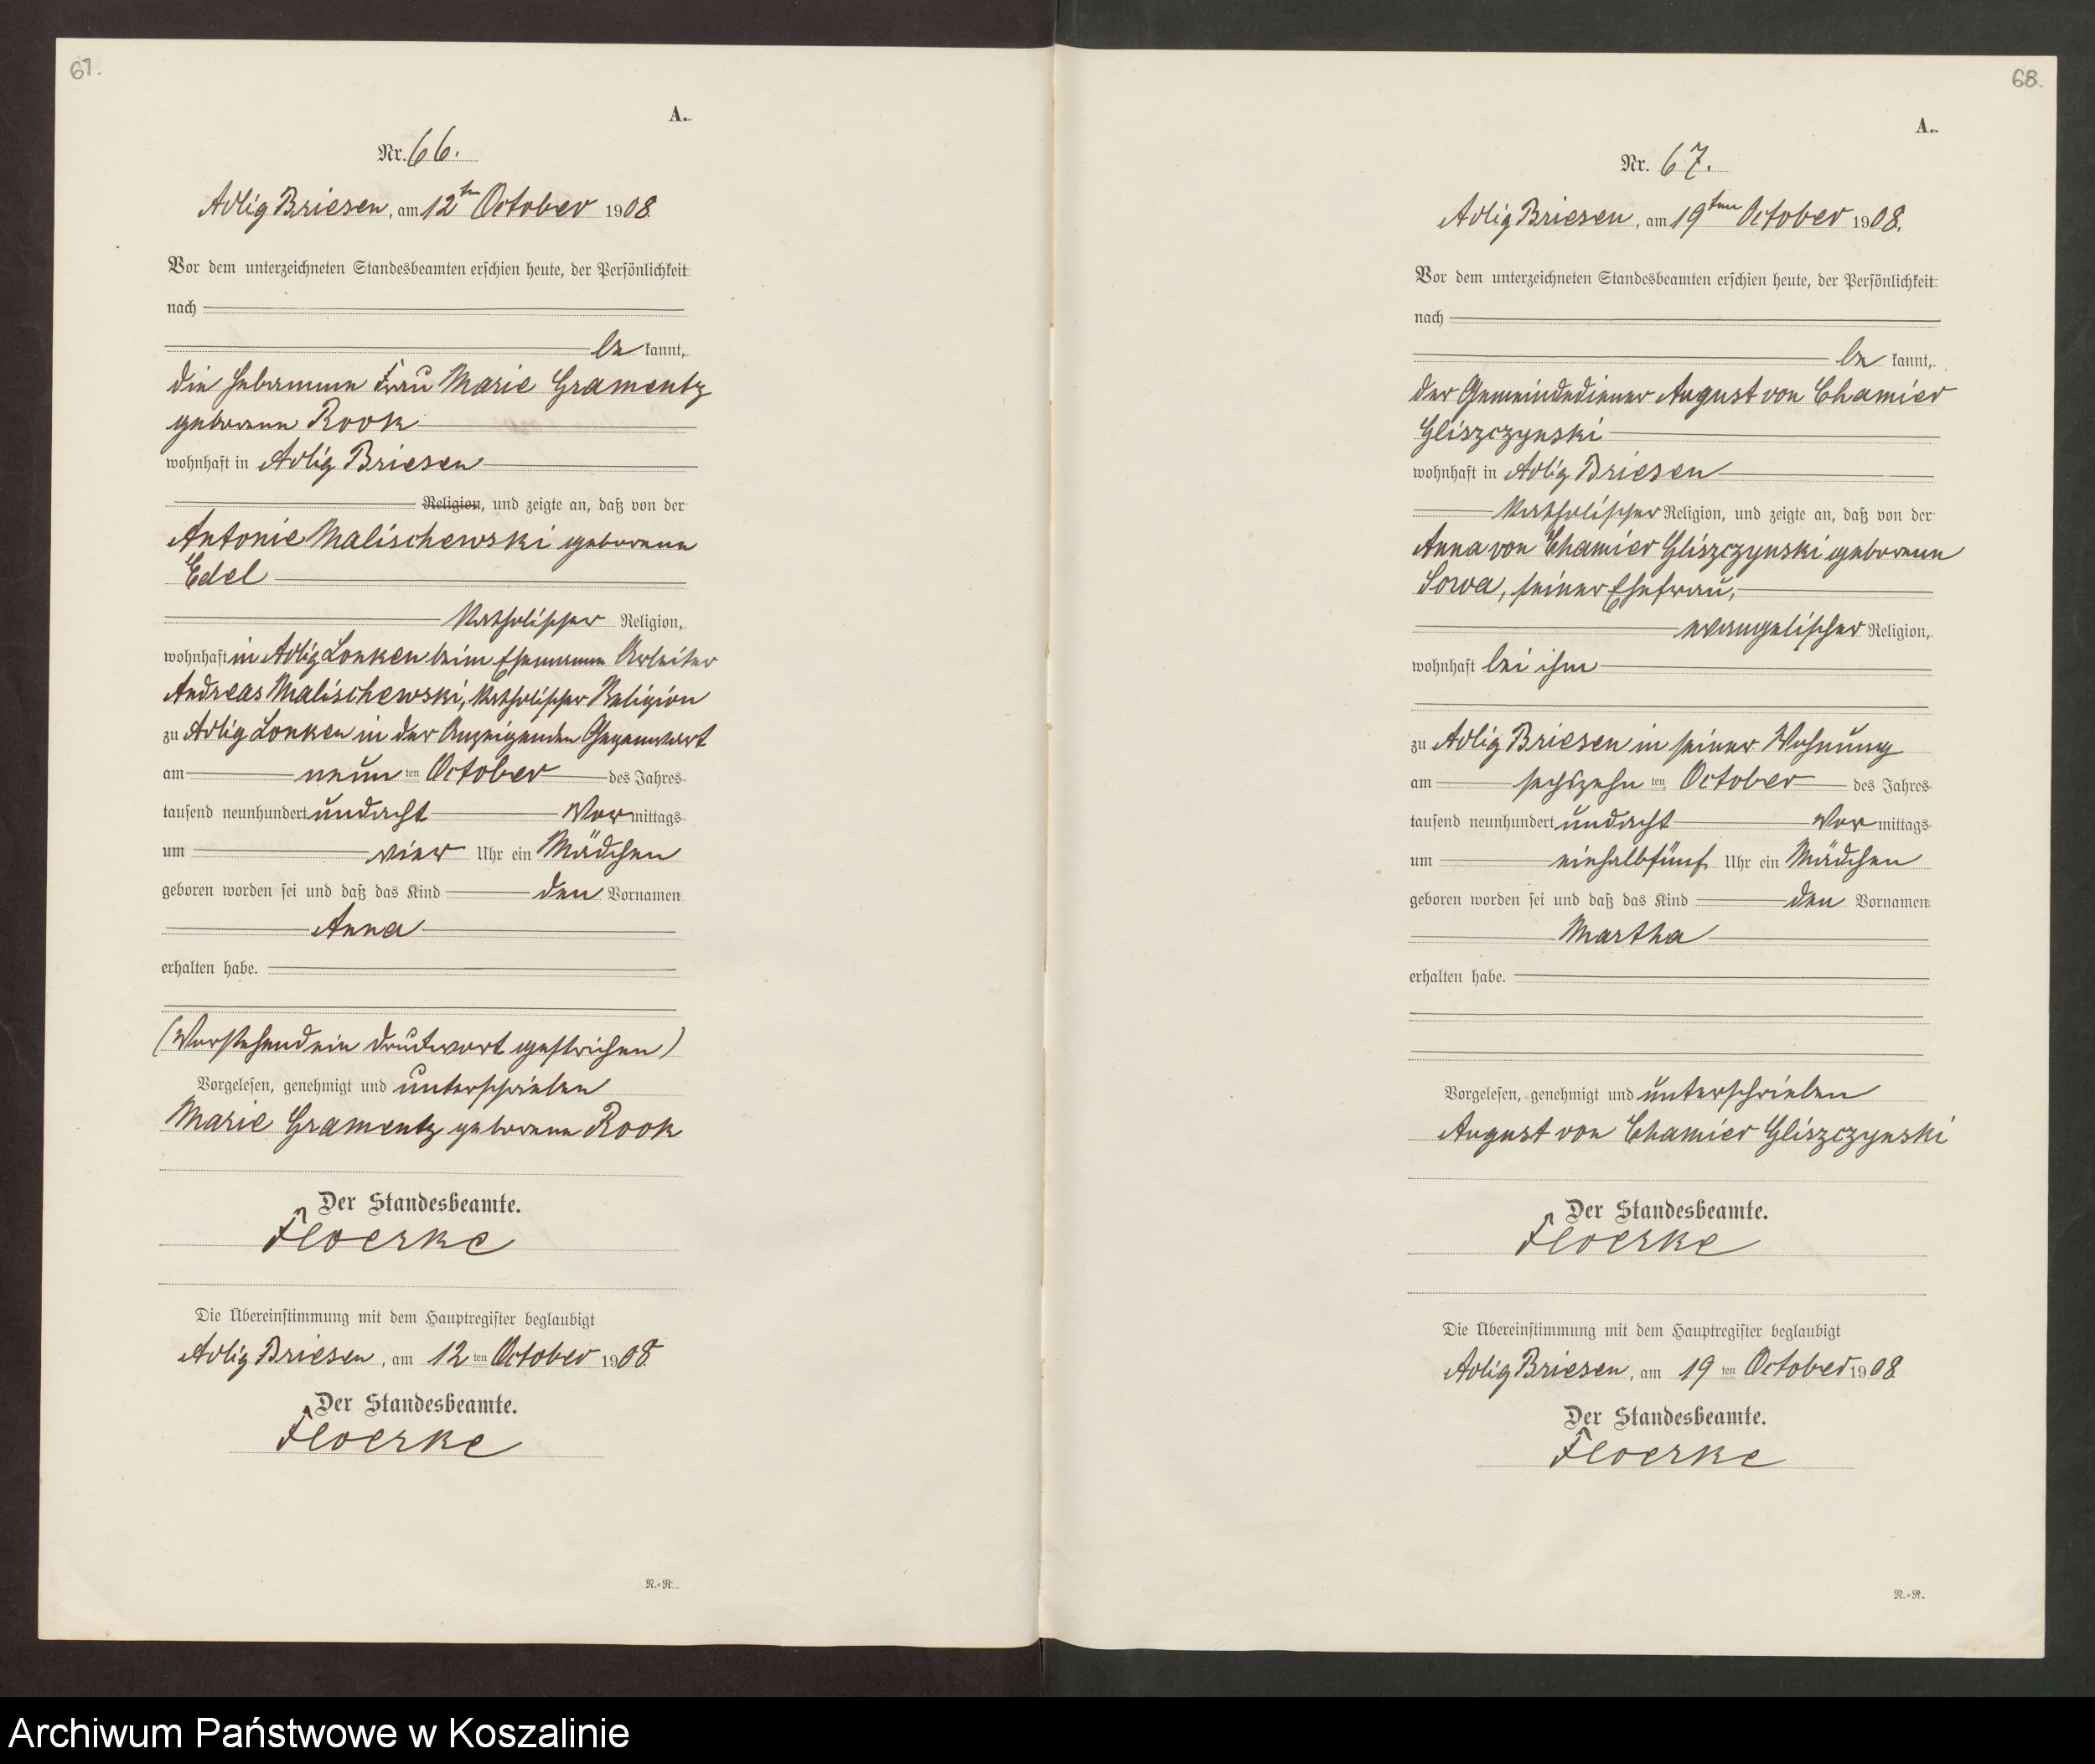 67.
A.
Nr. 66.
Adlig Briesen, am 12ten October 1908.
Vor dem unterzeichneten Standesbeamten erschien heute, der Persönlichkeit
nach
be kannt,
die Hebamme Frau Marie Gramentz
geborene Rook
wohnhaft in Adlig Briesen
Religion, und zeigte an, daß von der
Antonie Malischewski geborene
Edel
katholischer Religion,
wohnhaft in Adlig Lonken beim Ehemann Arbeiter
Andreas Malischewski, katholischer Religion
zu Adlig Lonken in der Anzeigenden Gegenwart
am neun ten October des Jahres
tausend neunhundert undacht Vormittags
um vier Uhr ein Mädchen
geboren worden sei und daß das Kind den Vornamen
Anna
erhalten habe.
(Vorstehend ein Druckwort gestrichen)
Vorgelesen, genehmigt und unterschrieben
Marie Gramentz geborene Rook
Der Standesbeamte.
Floerke
Die Übereinstimmung mit dem Hauptregister beglaubigt
Adlig Briesen, am 12 ten October 1908.
Der Standesbeamte.
Floerke
N.=R.
68.
A.
Nr. 67.
Adlig Briesen, am 19ten October 1908.
Vor dem unterzeichneten Standesbeamten erschien heute, der Persönlichkeit
nach
be kannt,
der Gemeindediener August von Chamier
Gliszczynski
wohnhaft in Adlig Briesen
katholischer Religion, und zeigte an, daß von der
Anna von Chamier Gliszczynski geborene
Sowa, seiner Ehefrau,
evangelischer Religion,
wohnhaft bei ihm
zu Adlig Briesen in seiner Wohnung
am sechszehn ten October des Jahres
tausend neunhundert undacht Vor mittags
um einhalbfünf Uhr ein Mädchen
geboren worden sei und daß das Kind den Vornamen
Martha
erhalten habe.
Vorgelesen, genehmigt und unterschrieben
August von Chamier Gliszczynski
Der Standesbeamte.
Floerke
Die Übereinstimmung mit dem Hauptregister beglaubigt
Adlig Briesen, am 19 ten October 1908
Der Standesbeamte.
Floerke
N.=R.
Archiwum Państwowe w Koszalinie